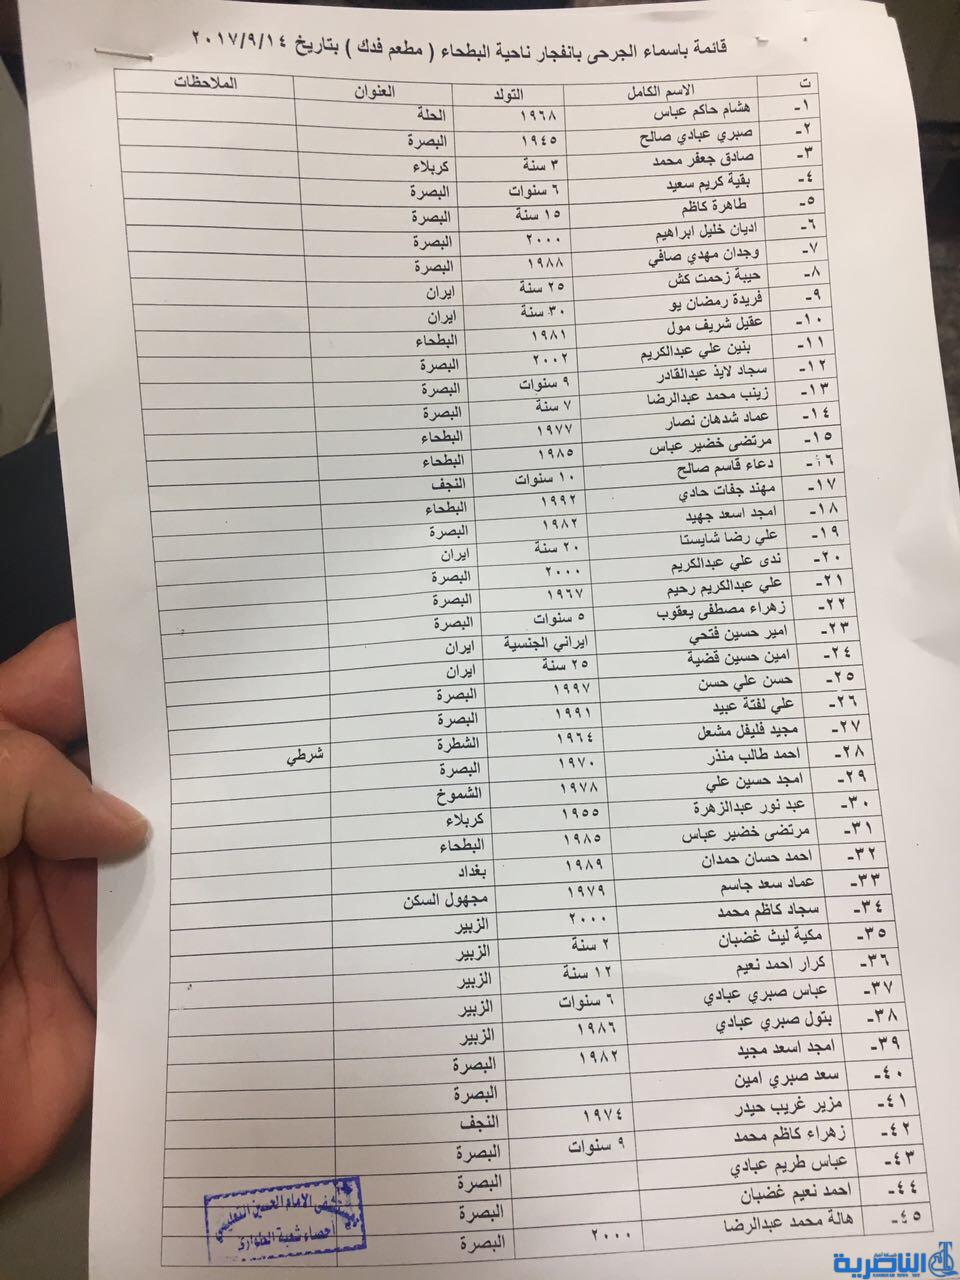 قائمة باسماء الجرحى بانفجار ناحية البطحاء ( مطعم فدك ) بتاريخ ٢٠١٧/٩/١٤
ت الاسم الكامل التولد العنوان الملاحظات
١- هشام حاكم عباس ١٩٦٨ الحلة
٢- صبري عبادي صالح ١٩٤٥ البصرة
٣- صادق جعفر محمد ٣ سنة كربلاء
٤- بقية كريم سعيد ٦ سنوات البصرة
٥- طاهرة كاظم ١٥ سنة البصرة
٦- اديان خليل ابراهيم ٢٠٠٠ البصرة
٧- وجدان مهدي صافي ١٩٨٨ البصرة
٨- حيبة زحمت كش ٢٥ سنة ايران
٩- فريدة رمضان يو ٣٠ سنة ايران
١٠- عقيل شريف مول ١٩٨١ البطحاء
١١- بنين علي عبدالكريم ٢٠٠٢ البصرة
١٢- سجاد لايذ عبدالقادر ٩ سنوات البصرة
١٣- زينب محمد عبدالرضا ٧ سنة البصرة
١٤- عماد شدهان نصار ١٩٧٧ البطحاء
١٥- مرتضى خضير عباس ١٩٨٥ البطحاء
١٦- دعاء قاسم صالح ١٠ سنوات النجف
١٧- مهند جفات حادي ١٩٩٢ البطحاء
١٨- امجد اسعد جهيد ١٩٨٢ البصرة
١٩- علي رضا شايستا ٢٠ سنة ايران
٢٠- ندى علي عبدالكريم ٢٠٠٠ البصرة
٢١- علي عبدالكريم رحيم ١٩٦٧ البصرة
٢٢- زهراء مصطفى يعقوب ٥ سنوات البصرة
٢٣- امير حسين فتحي ايراني الجنسية ايران
٢٤- امين حسين قضية ٢٥ سنة ايران
٢٥- حسن علي حسن ١٩٩٧ البصرة
٢٦- علي لفتة عبيد ١٩٩١ البصرة
٢٧- مجيد فليفل مشعل ١٩٦٤ الشطرة شرطي
٢٨- احمد طالب منذر ١٩٧٠ البصرة
٢٩- امجد حسين علي ١٩٧٨ الشموخ
٣٠- عبد نور عبدالزهرة ١٩٥٥ كربلاء
٣١- مرتضى خضير عباس ١٩٨٥ البطحاء
٣٢- احمد حسان حمدان ١٩٨٩ بغداد
٣٣- عماد سعد جاسم ١٩٧٩ مجهول السكن
٣٤- سجاد كاظم محمد ٢٠٠٠ الزبير
٣٥- مكية ليث غضبان ٢ سنة الزبير
٣٦- كرار احمد نعيم ١٢ سنة الزبير
٣٧- عباس صبري عبادي ٦ سنوات الزبير
٣٨- بتول صبري عبادي ١٩٨٦ الزبير
٣٩- امجد اسعد مجيد ١٩٨٢ البصرة
٤٠- سعد صبري امين البصرة
٤١- مزير غريب حيدر ١٩٧٤ النجف
٤٢- زهراء كاظم محمد ٩ سنوات البصرة
٤٣- عباس طريم عبادي البصرة
٤٤- احمد نعيم غضبان البصرة
٤٥- هالة محمد عبدالرضا ٢٠٠٠ البصرة
مستشفى الامام الحسين التعليمي
احصاء شعبة الطوارئ
الناصرية